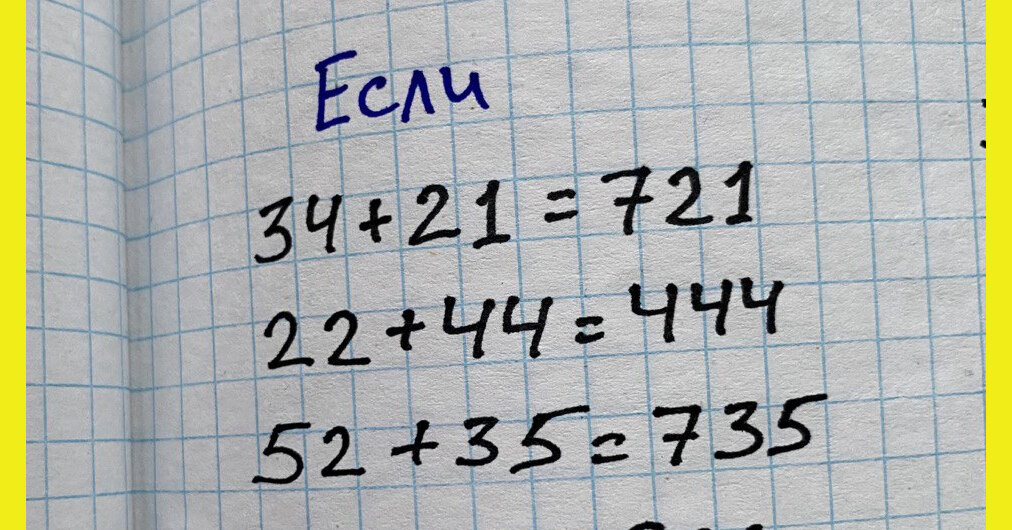 Если
34+21=721
22+44=444
52+35=735